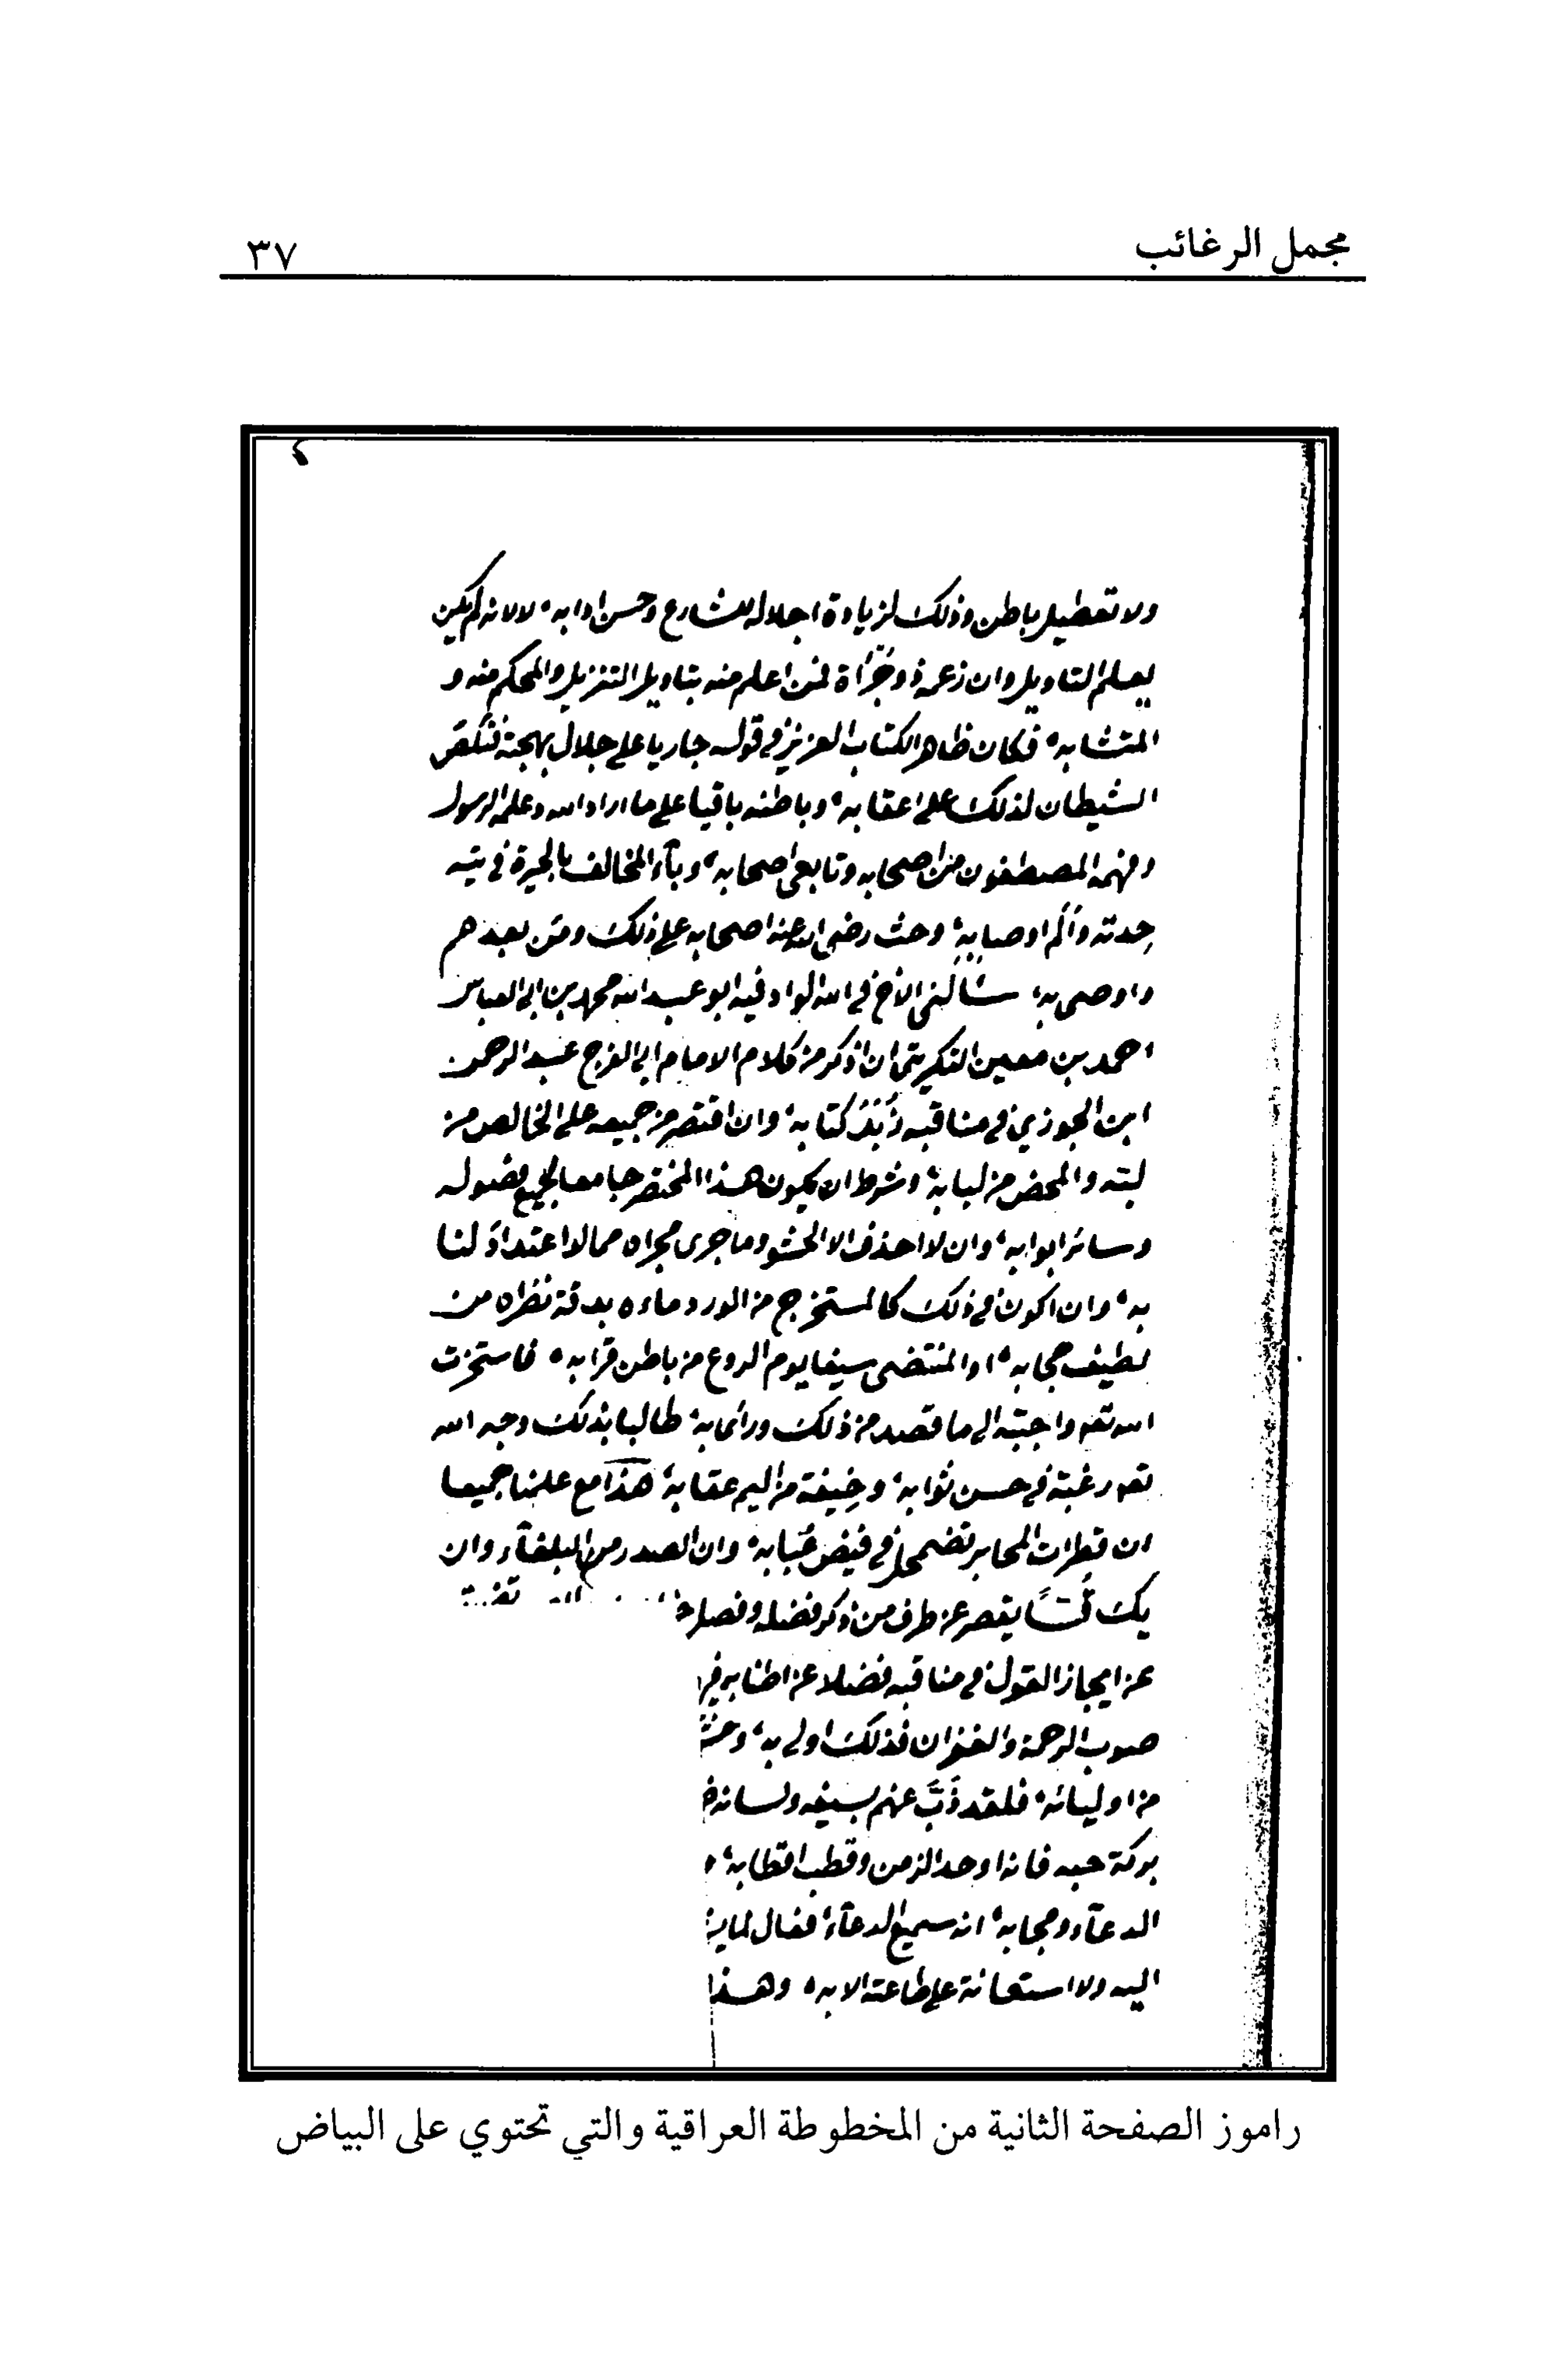 مجمل الرغائب
٣٧
ولا تعطيل باطن وذلك لزيادة اجلاله للشارع وحسن ادابه، لا لانه لم يكن
يعلم التاويل وان زعمه ذو جُرْأة فمن اعلم منه بتاويل التنزيل والمحكم منه و
المتشابه، فكان ظاهر الكتاب العزيز في قوله جاريا على جلال بهجته فنكص
الشيطان لذلك على اعقابه، وباطنه باقيا على ما اراد الله وعلمه الرسول
وفهمه المصطفون من اصحابه وتابعي اصحابه، وبآء المخالف بالحيرة في تيه
وألم اوصابه، وحث رضي الله عنه اصحابه على ذلك ومن بعدهم
واوصى به، سألني الأخ في الله الواد فيه ابو عبد الله محمد بن ابي العباس
احمد بن معين التكريتي ان اذكر من كلام الامام ابي الفرج عبد الرحمن
ابن الجوزي في مناقبه زُبَدَ كتابه، وان اقتصر من جميعه على الخالص من
لبته والمحض من لبابه، وشرط ان يكون هذا المختصر جامعا لجميع فصوله
وسائر ابوابه، وان لا احذف الا الحشو وما جرى مجراه مما لا اعتداد لنا
به، وان اكون في ذلك كالمستخرج من الورد ماءه بدقة نظره من
لطيف حجابه، او المنتضي سيفا يوم الروع من باطن قرابه، فاستخرت
الله تعـ واجبته الى ما قصد من ذلك ورأى به، طالبا بذلك وجه الله
تعـ ورغبة في حسن ثوابه، وخيفة من اليم عقابه، هذا مع علمنا جميعا
ان قطرات المحابر تضمحل في فيض عُبابه، وان الصدر من البلغآء وان
يك يقصر عن طرف من ذكر فضله وفصل
عن ايجاز القول في مناقبه فضلا عن اطنابه
صوب الرحمة والغفران فذلك اولى به،
من اوليائه، فلقد ذَبَّ عنهم بسيفه ولسانه
بركة حبه فانه اوحد الزمن وقطب اقطابه،
الدعآء ومجابه، انه سميع الدعآء، فعال لما
اليه ولا استعانة على طاعته الا به، وهذا
راموز الصفحة الثانية من المخطوطة العراقية والتي تحتوي على البياض